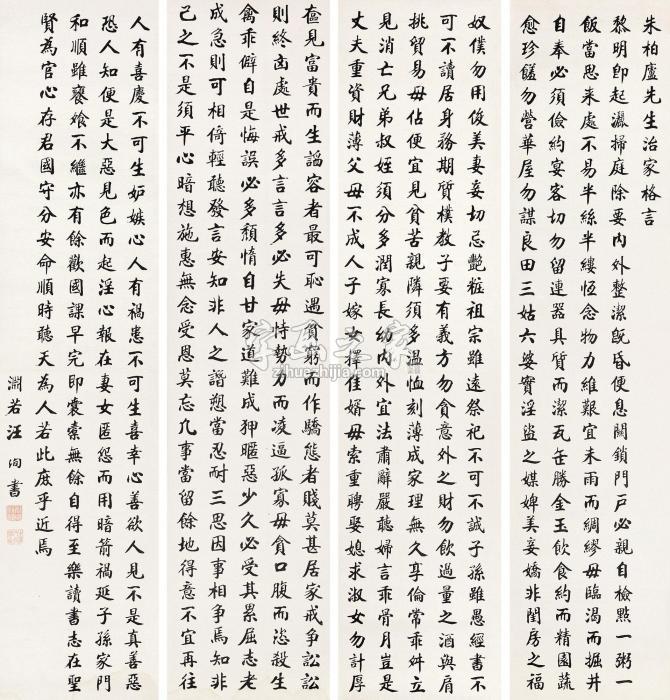 朱柏廬先生治家格言
黎明即起灑掃庭除要內外整潔既昏便息關鎖門戶必親自檢點一粥一
飯當思來處不易半絲半縷恆念物力維艱宜未雨而綢繆毋臨渴而掘井
自奉必須儉約宴客切勿留連器具質而潔瓦缶勝金玉飲食約而精園蔬
愈珍饈勿營華屋勿謀良田三姑六婆實淫盜之媒婢美妾嬌非閨房之福
奴僕勿用俊美妻妾切忌艷粧祖宗雖遠祭祀不可不誠子孫雖愚經書不
可不讀居身務期質樸教子要有義方勿貪意外之財勿飲過量之酒與肩
挑貿易毋佔便宜見貧苦親鄰須多溫恤刻薄成家理無久享倫常乖舛立
見消亡兄弟叔姪須分多潤寡長幼內外宜法肅辭嚴聽婦言乖骨月豈是
丈夫重資財薄父母不成人子嫁女擇佳婿毋索重聘娶媳求淑女勿計厚
奩見富貴而生諂容者最可恥遇貧窮而作驕態者賤莫甚居家戒爭訟訟
則終凶處世戒多言言多必失毋恃勢力而凌逼孤寡毋貪口腹而恣殺生
禽乖僻自是悔誤必多頹惰自甘家道難成狎暱惡少久必受其累屈志老
成急則可相倚輕聽發言安知非人之譖愬當忍耐三思因事相爭焉知非
己之不是須平心暗想施惠無念受恩莫忘凡事當留餘地得意不宜再往
人有喜慶不可生妒嫉心人有禍患不可生喜幸心善欲人見不是真善惡
恐人知便是大惡見色而起淫心報在妻女匿怨而用暗箭禍延子孫家門
和順雖饔飧不繼亦有餘歡國課早完即囊橐無餘自得至樂讀書志在聖
賢為官心存君國守分安命順時聽天為人若此庶乎近焉
淵若汪洵書
字画之家